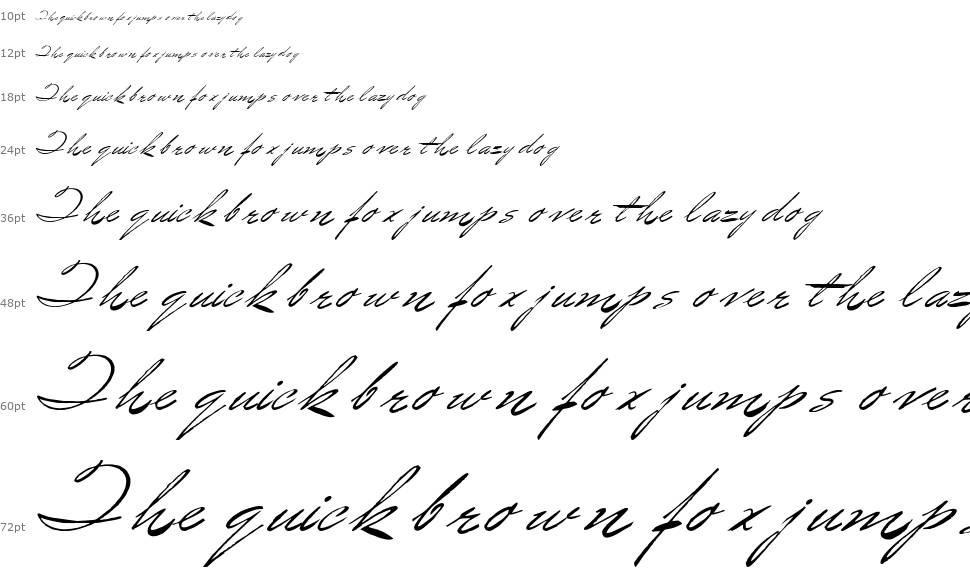 10pt The quick brown fox jumps over the lazy dog
12pt The quick brown fox jumps over the lazy dog
18pt The quick brown fox jumps over the lazy dog
24pt The quick brown fox jumps over the lazy dog
36pt The quick brown fox jumps over the lazy dog
48pt The quick brown fox jumps over the laz
60pt The quick brown fox jumps over
72pt The quick brown fox jump